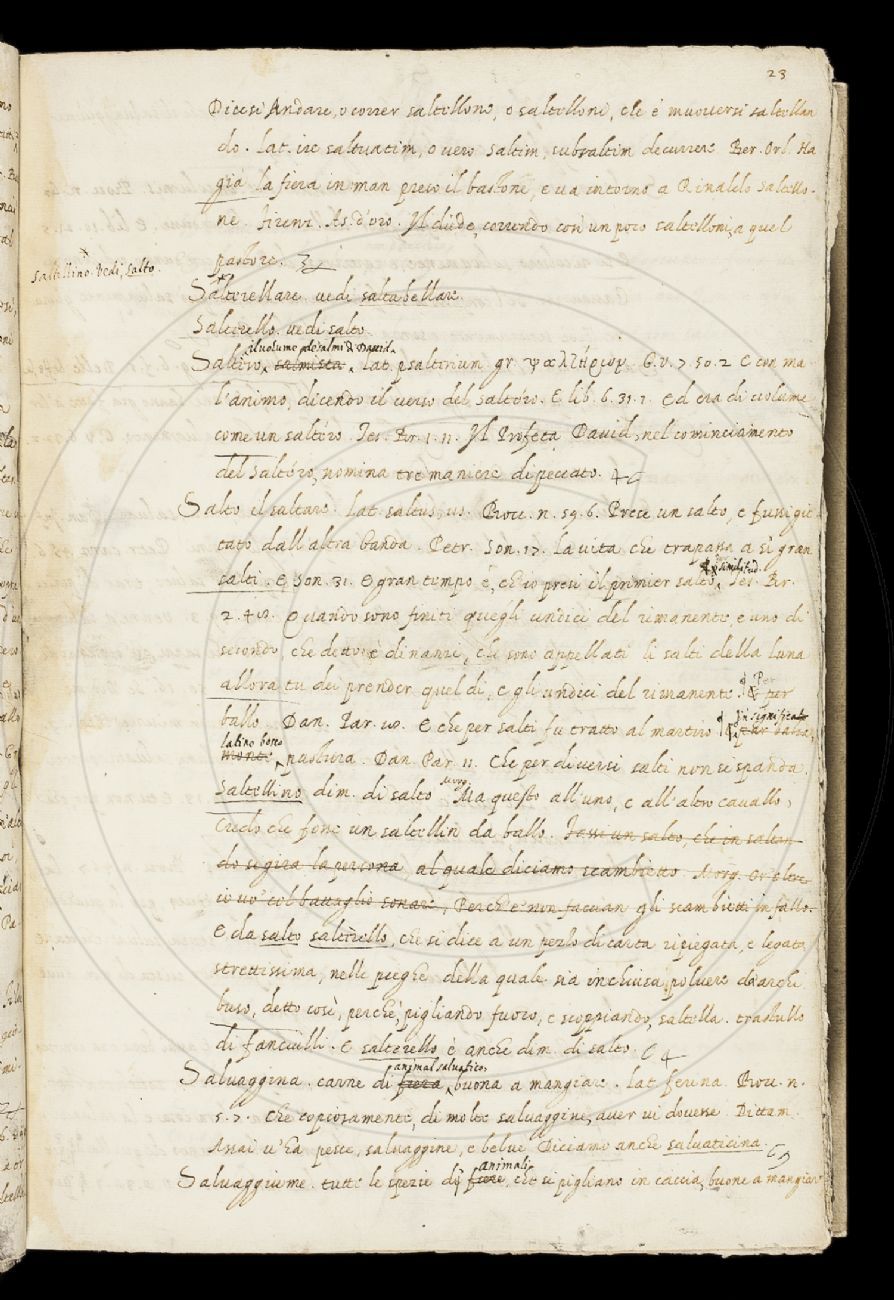 23
Dicesi Andare, o correr saltellone, o saltelloni, che è muoversi saltellan
do. lat. ire saltuatim, o vero saltim, subsaltim decurrere. Ber. Orl. Ha
già la fiera in man preso il bastone, e va intorno a Rinaldo saltello-
ne. Firenz. As. d'oro. Il diede, correndo così un poco saltelloni, a quel
pastore.
Saltellino. Vedi, Salto.
Salterellare. vedi saltabellare.
Salterello. vedi salto.
il volume de salmi di David
Saltero, salmista. lat. psalterium gr. ψαλτήριον. G. V. 7. 50. 2 E con ma
l'animo, dicendo il verso del Saltéro. E lib. 6. 31. 1. Ed era di volume
come un saltéro. Tes. Br. 1. 11. Il Profeta David, nel cominciamento
del Saltéro, nomina tre maniere di peccato.
Salto il saltare. lat. saltus, us. Bocc. n. 59. 6. Prese un salto, e fussi git
tato dall'altra banda. Petr. Son. 17. La vita che trapassa a sì gran
salti. E Son. 31. E gran tempo è, ch'io presi il primier salto. Tes. Br.
similitud.
2. 48. Quando sono finiti quegli undici del rimanente, e uno di
secondo, che detto è dinanzi, che sono appellati li salti della luna
allora tu dei prender quel dì, e gli undici del rimanente. & per
Per
ballo. Dan. Par. 18. E che per salti fu tratto al martiro per balza,
In significato
latino bosco
monte, pastura. Dan. Par. 11. Che per diversi salti non si spanda.
Saltellino dim. di salto Ma questo all'uno, e all'altro cavallo,
Morg.
Credo che fene un saltellin da ballo. Fassi un salto, che in saltan-
do si gira la persona, al quale diciamo scambietto. Morg. Or oltre
io vo' col battaglio sonare, Perch'e' non faccian gli scambietti in fallo.
E da salto salterello, che si dice a un pezzo di carta ripiegata, e legata
strettissima, nelle pieghe della quale sia inchiusa polvere d'archi
buso, detto così, perché, pigliando fuoco, e scoppiando, saltella. trastullo
di fanciulli. E salterello è anche dim. di salto.
animal salvatico
Salvaggina. carne di fiera, buona a mangiare. lat. ferina. Bocc. n.
5. 7. che copiosamente, di molte salvaggine, aver vi dovesse. Dittam.
Assai v'ha pesce, salvaggine, e belve Diciamo anche salvaticina.
animali
Salvaggiume. tutte le spezie di fiere, che si pigliano in caccia, buone a mangiar